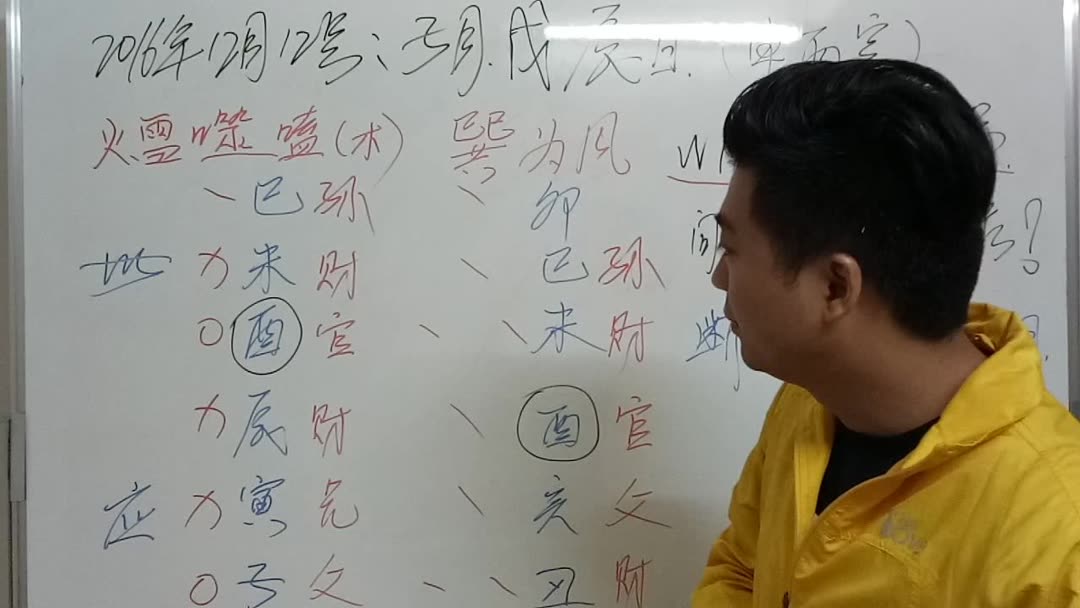 2016年12月12号:子月.戊辰日.(戌亥空)
火雷噬嗑(木) 巽为风
、巳孙 、卯
世 乂未财 、巳孙 问 ?
〇酉官 、、未财 断
乂辰财 、酉官
应 乂寅兄 、亥父
〇子父 、、丑财